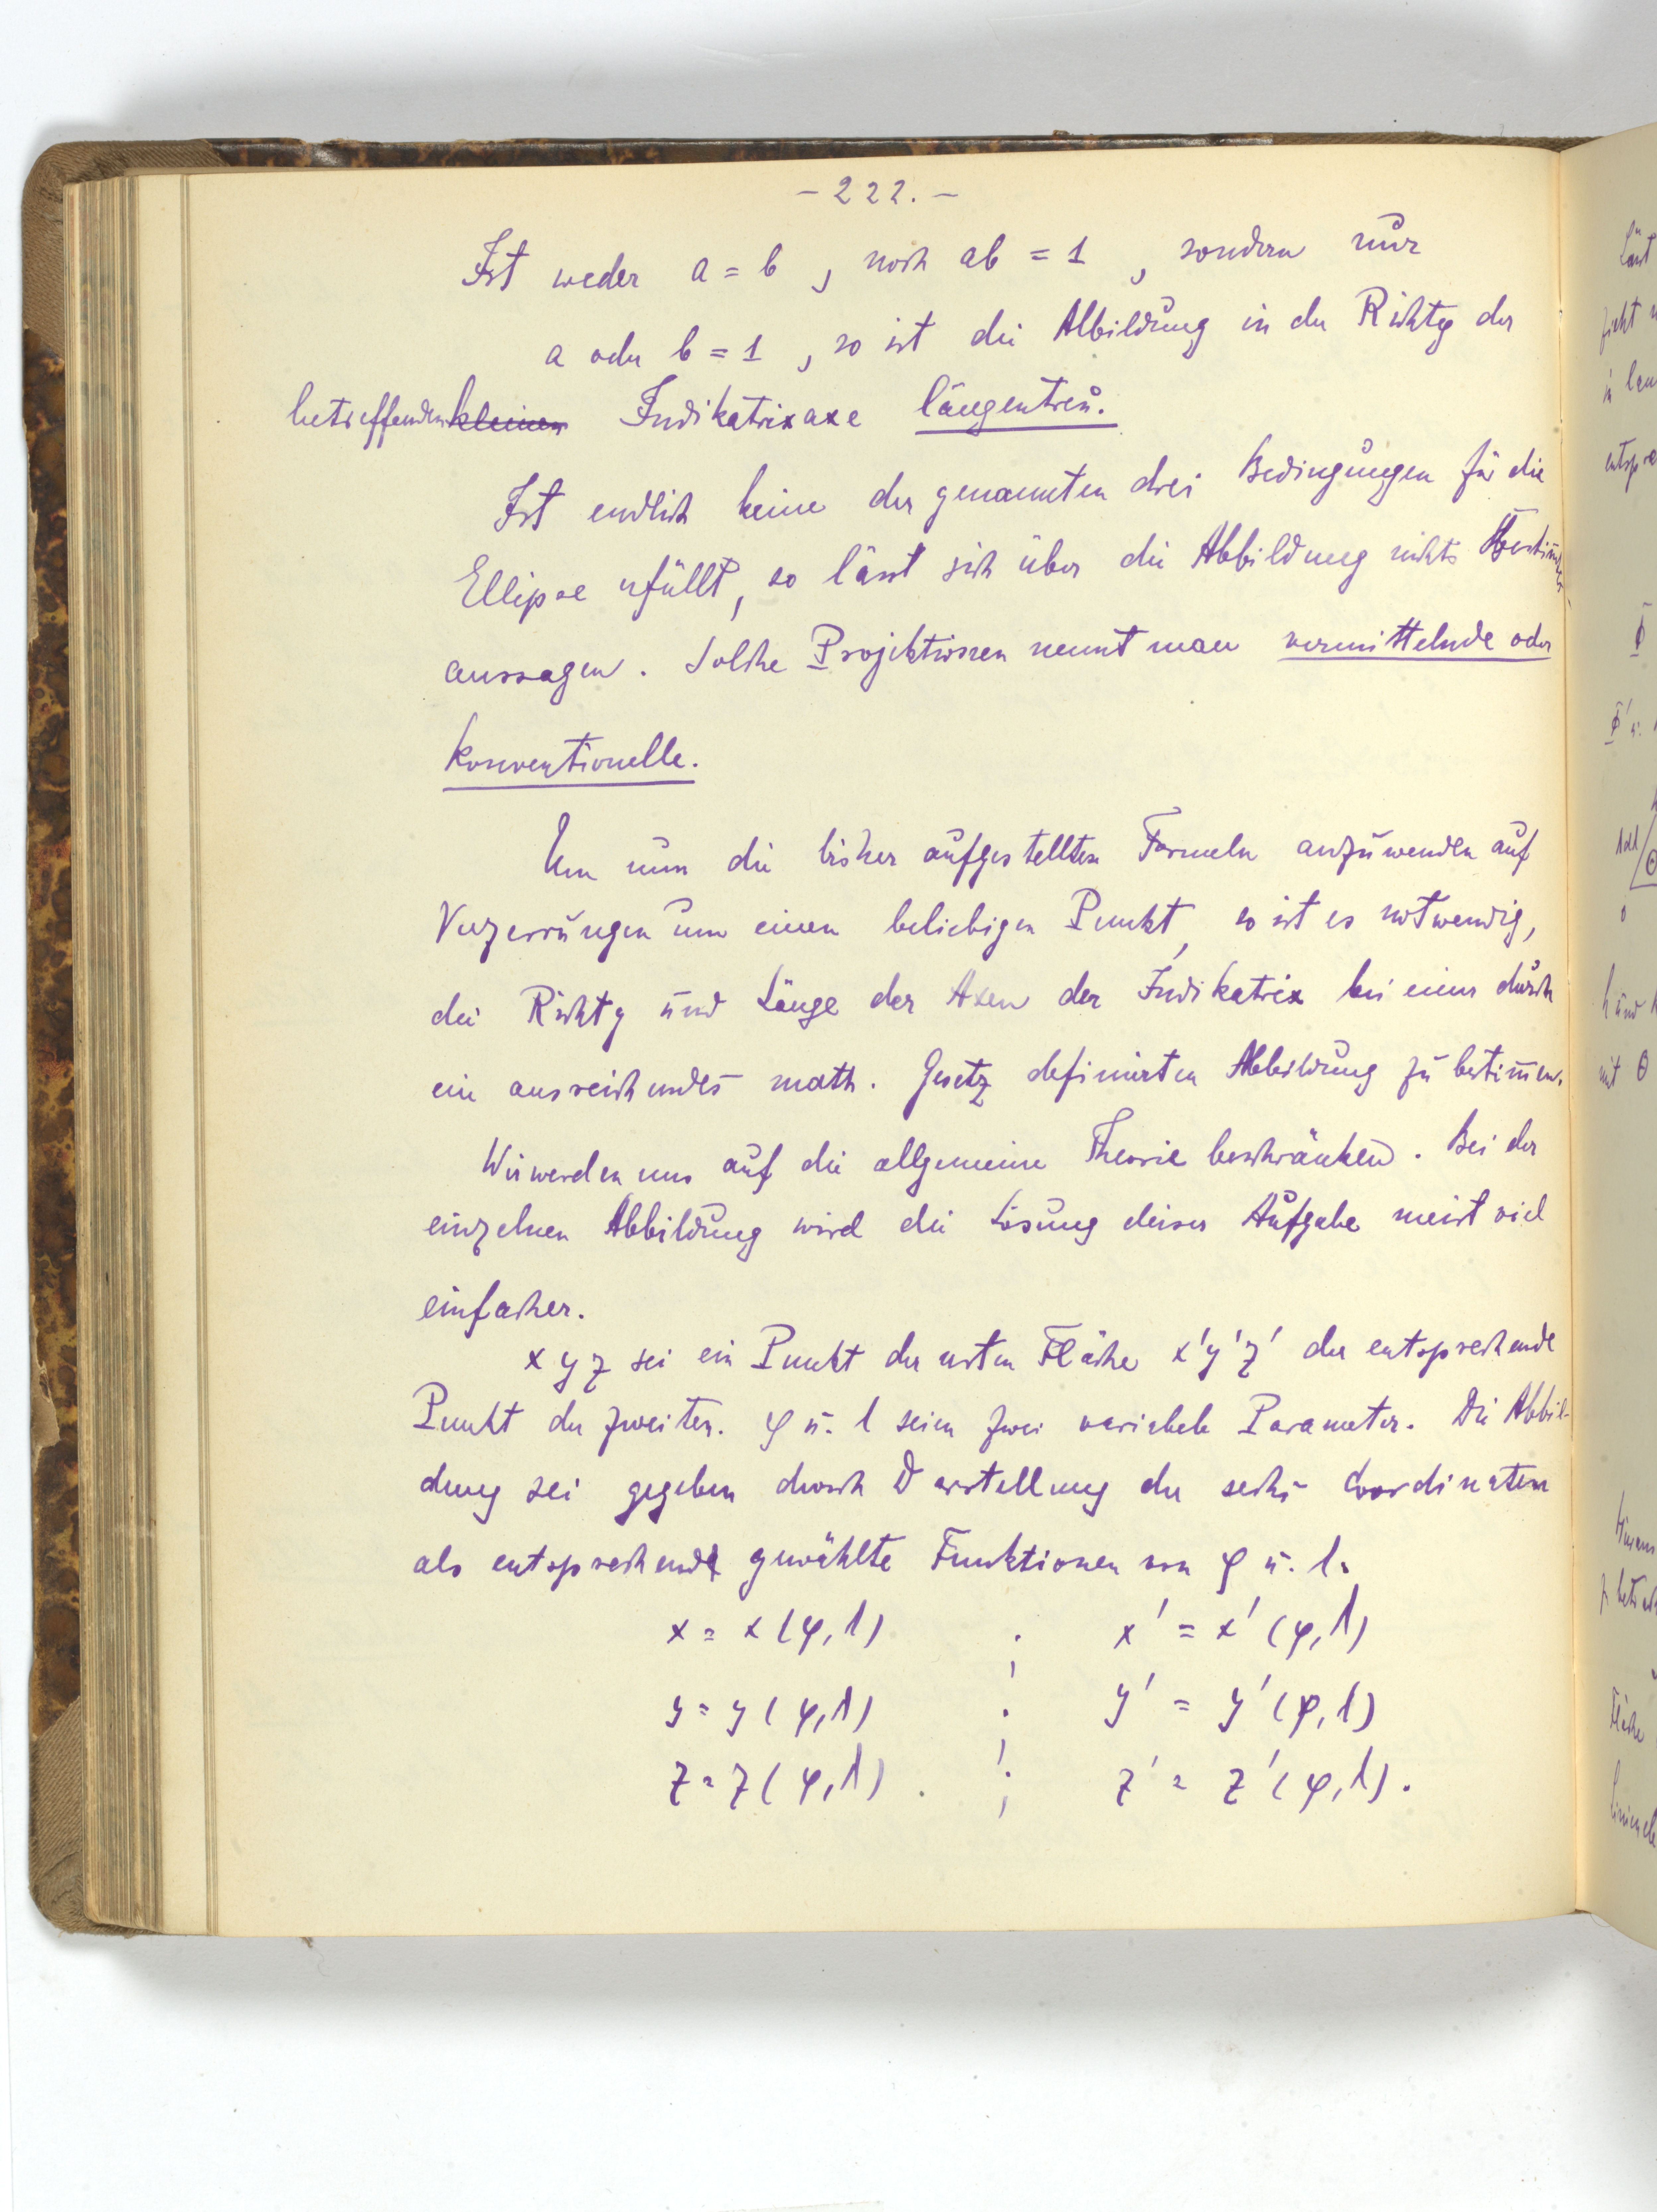 - 222. -
Ist weder a = b , noch ab = 1 , sondern nur
a oder b = 1 , so ist die Abbildung in der Richtg der
betreffenden kleinen Indikatrixaxe längentreu.
Ist endlich keine der genannten drei Bedingungen für die
Ellipse erfüllt, so lässt sich über die Abbildung nichts Bestimmtes
aussagen. Solche Projektionen nennt man vermittelnde oder
konventionelle.
Um nun die bisher aufgestellten Formeln anzuwenden auf
Verzerrungen um einen beliebigen Punkt, so ist es notwendig,
die Richtg und Länge der Axen der Indikatrix bei einer durch
ein ausreichendes math. Gesetz definirten Abbildung zu bestim̅en.
Wir werden uns auf die allgemeine Theorie beschränken. Bei der
einzelnen Abbildung wird die Lösung dieser Aufgabe meist viel
einfacher.
x y z sei ein Punkt der ersten Fläche x' y' z' der entsprechende
Punkt der zweiten. φ u. λ seien zwei variabele Parameter. Die Abbil-
dung sei gegeben durch Darstellung der sechs Coordinaten
als entsprechend gewählte Funktionen von φ u. λ.
x = x (φ, λ) ; x' = x' (φ, λ)
y = y (φ, λ) ; y' = y' (φ, λ)
z = z (φ, λ) . ; z' = z' (φ, λ).